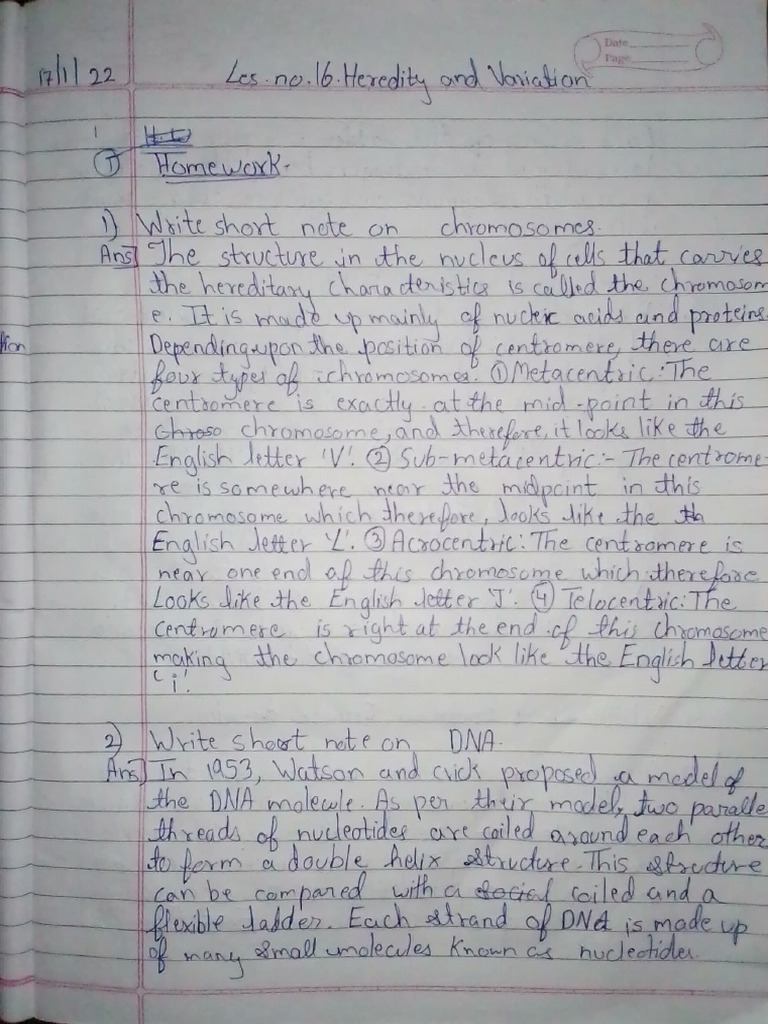 Date
Page
17/1/22 Les. no. 16. Heredity and Variation
1 H.W
① Homework.
1) Write short note on chromosomes.
Ans] The structure in the nucleus of cells that carries
the hereditary characteristics is called the chromosom
e. It is made up mainly of nucleic acids and proteins.
Depending upon the position of centromere, there are
four types of chromosomes. ① Metacentric: The
centromere is exactly at the mid-point in this
Chroso chromosome, and therefore, it looks like the
English letter 'V'. ② Sub-metacentric:- The centrome-
re is somewhere near the midpoint in this
chromosome which therefore, looks like the th
English letter 'L'. ③ Acrocentric: The centromere is
near one end of this chromosome which therefore
Looks like the English letter 'J'. ④ Telocentric: The
centromere is right at the end of this chromosome
making the chromosome look like the English letter
'i'.
2) Write short note on DNA.
Ans] In 1953, Watson and crick proposed a model of
the DNA molecule. As per their model, two paralle
threads of nucleotides are coiled around each other
to form a double helix structure. This structure
can be compared with a coiled and a
flexible ladder. Each strand of DNA is made up
of many small molecules known as nucleotides.